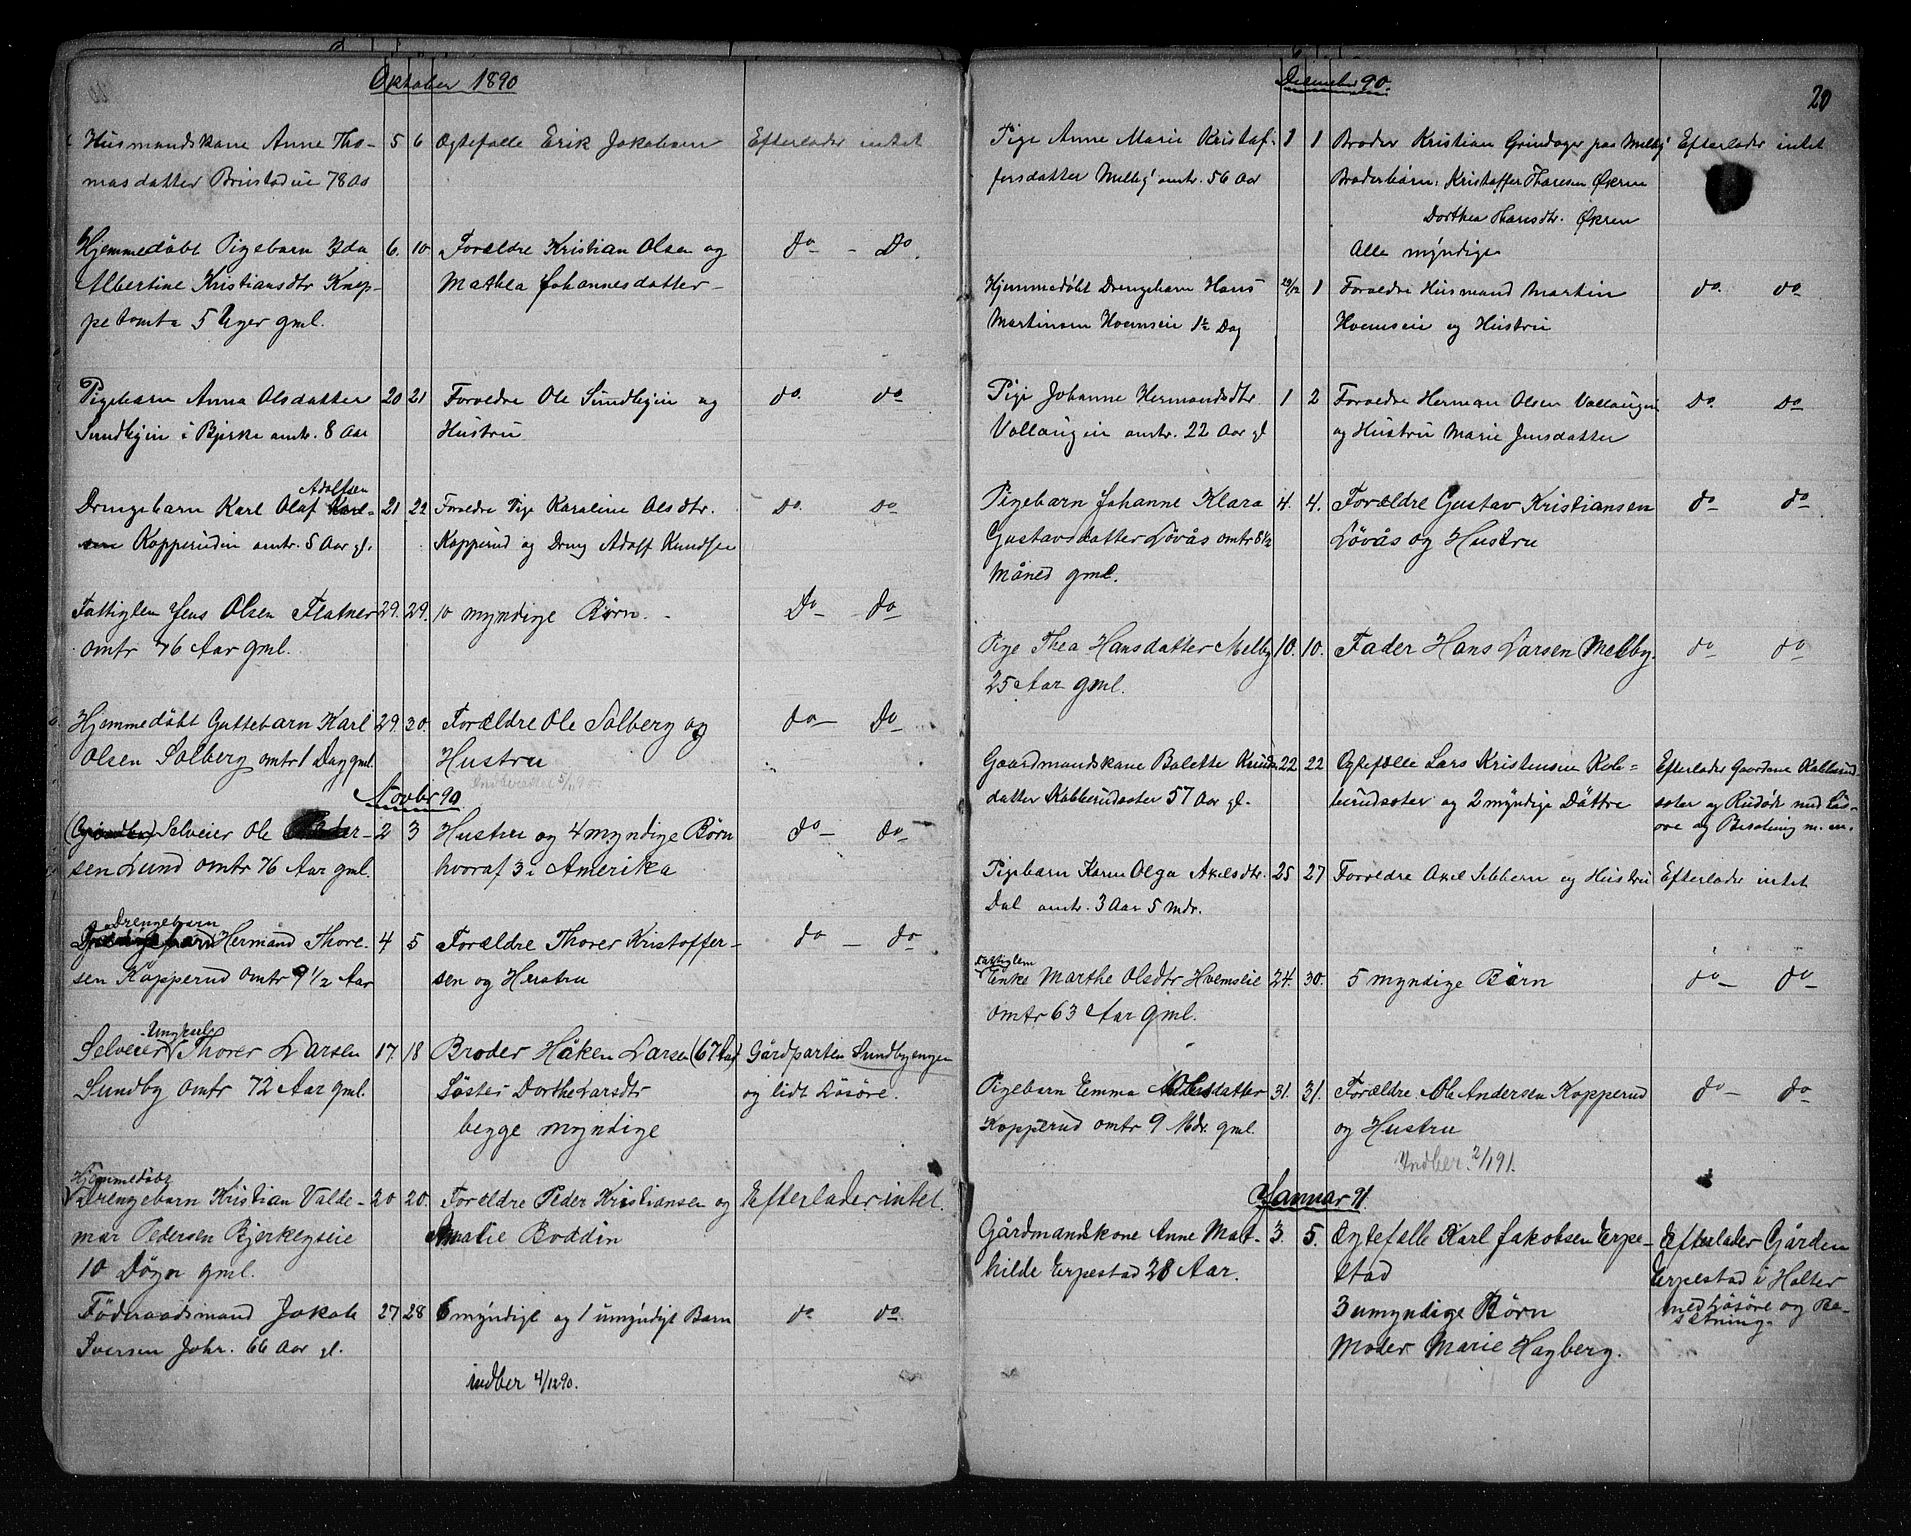 Oktober 1890
Husmandskone Anne Tho- 5 6 Ægtefælle Erik Jakobsen Efterlader intet
masdatter 78 Aa
Hjemmedøbt Pigebarn Ida 6. 10 Forældre Kristian Olsen og do - Do.
Albertine Kristiansdtr Knep- Mathea Johannesdatter -
petomta 5 Uger gml.
Pigebarn Anna Olsdatter 20 21 Forældre Ole Sundbyein og do. do
Sundbyein i Bjerke omtr. 8 Aar Hustru
Adolfsen
Drengebarn Karl Olaf Karl- 21 22 Forældre Pige Karoline Olsdtr. Do. do
sen Kopperudein omtr. 5 Aar gl. Kopperud og Dreng Adolf Knudsen
Fattiglem Jens Olsen Flatner 29. 29. 10 myndige Børn. - Do - do
omtr 76 Aar gml.
Hjemmedøbt Guttebarn Karl 29. 30. Forældre Ole Solberg og do - do
Olsen Solberg omtr 1 Dag gml. Hustru
5/11 90.
Novbr 90
Selveier Ole 2 3 Hustru og 4 myndige Børn do - do
sen Lund omtr 76 Aar gml. hvoraf 3 i Amerika
Drengebarn
Hermand Thore- 4 5 Forældre Thorer Kristoffer- do - do
sen Kopperud omtr 9 1/2 Aar sen og Hustru
Ungkarl
Selveier Thorer Larsen 17. 18 Broder Håken Larsen (67 Aar) Gårdparten Sundbyengen
Sundby omtr 72 Aar gml. Søster Dorthe Larsdtr og lidt Løsøre.
begge myndige
Hjemmedøbt
Drengebarn Kristian Valde- 20 20. Forældre Peder Kristiansen og Efterlader intet.
mar Pedersen Bjerkeyseie Amalie Boddin
10 Døgn gml.
Føderaadsmand Jakob 27 28 6 myndige og 1 umyndigt Barn do do.
Iversen Johr. 66 Aar gl.
indber 4/12 90.
December 90.
20
Pige Anne Marie Kristof- 1 1 Broder Kristian Grindager paa Melby Efterlader intet
fersdatter Melby omtr. 56 Aar Broderbørn: Kristoffer Thoresen Økren
Dorthea Thorsdtr. Økren
Alle myndige
Hjemmedøbt Drengebarn Hans 29/12 1 Forældre Husmand Martin do. do
Martinsen Hvemseie 1 1/2 Dag Hvemseie og Hustru
Pige Johanne Hermandsdtr. 1 2 Forældre Herman Olsen Vollaugein Do. Do
Vollaugein omtr. 22 Aar gl og Hustru Marie Jensdatter
Pigebarn Johanne Klara 4. 4. Forældre Gustav Kristiansen do do
Gustavsdatter Løvås omtr 8 1/2 Løvås og Hustru
Måned gml.
Pige Thea Hansdatter Melby 10. 10. Fader Hans Larsen Melby. do do
25 Aar gml.
Gaardmandskone Bolette Knuds- 22 22 Ægtefælle Lars Kristensen Kob- Efterlader Gaardene Kobberud-
datter Kobberudseter 57 Aar gl. berudseter og 2 myndige Døttre seter og Rudsd med Løs-
øre og Besætning m. m.
Pigebarn Karen Olga Akselsdtr. 25 27 Forældre Axel Sebbern og Hustru Efterlader intet
Dal omtr. 3 Aar 5 Mdr.
Fattiglem
Enke Marthe Olsdtr Hvemseie 24. 30. 5 myndige Børn do - do
omtr 63 Aar gml.
Pigebarn Emma Olesdatter 31. 31. Forældre Ole Andersen Kopperud do - do
Kopperud omtr 9 Mdr. gml. og Hustru
Indber. 2/1 91.
Januar 91.
Gårdmandskone Anne Mat- 3. 5. Ægtefælle Karl Jakobsen Erpe- Efterlader Gården
hilde Erpestad 28 Aar. stad Erpestad i Holter
3 umyndige Børn med Løsøre og Be-
sætning.
Moder Marie Hagberg.